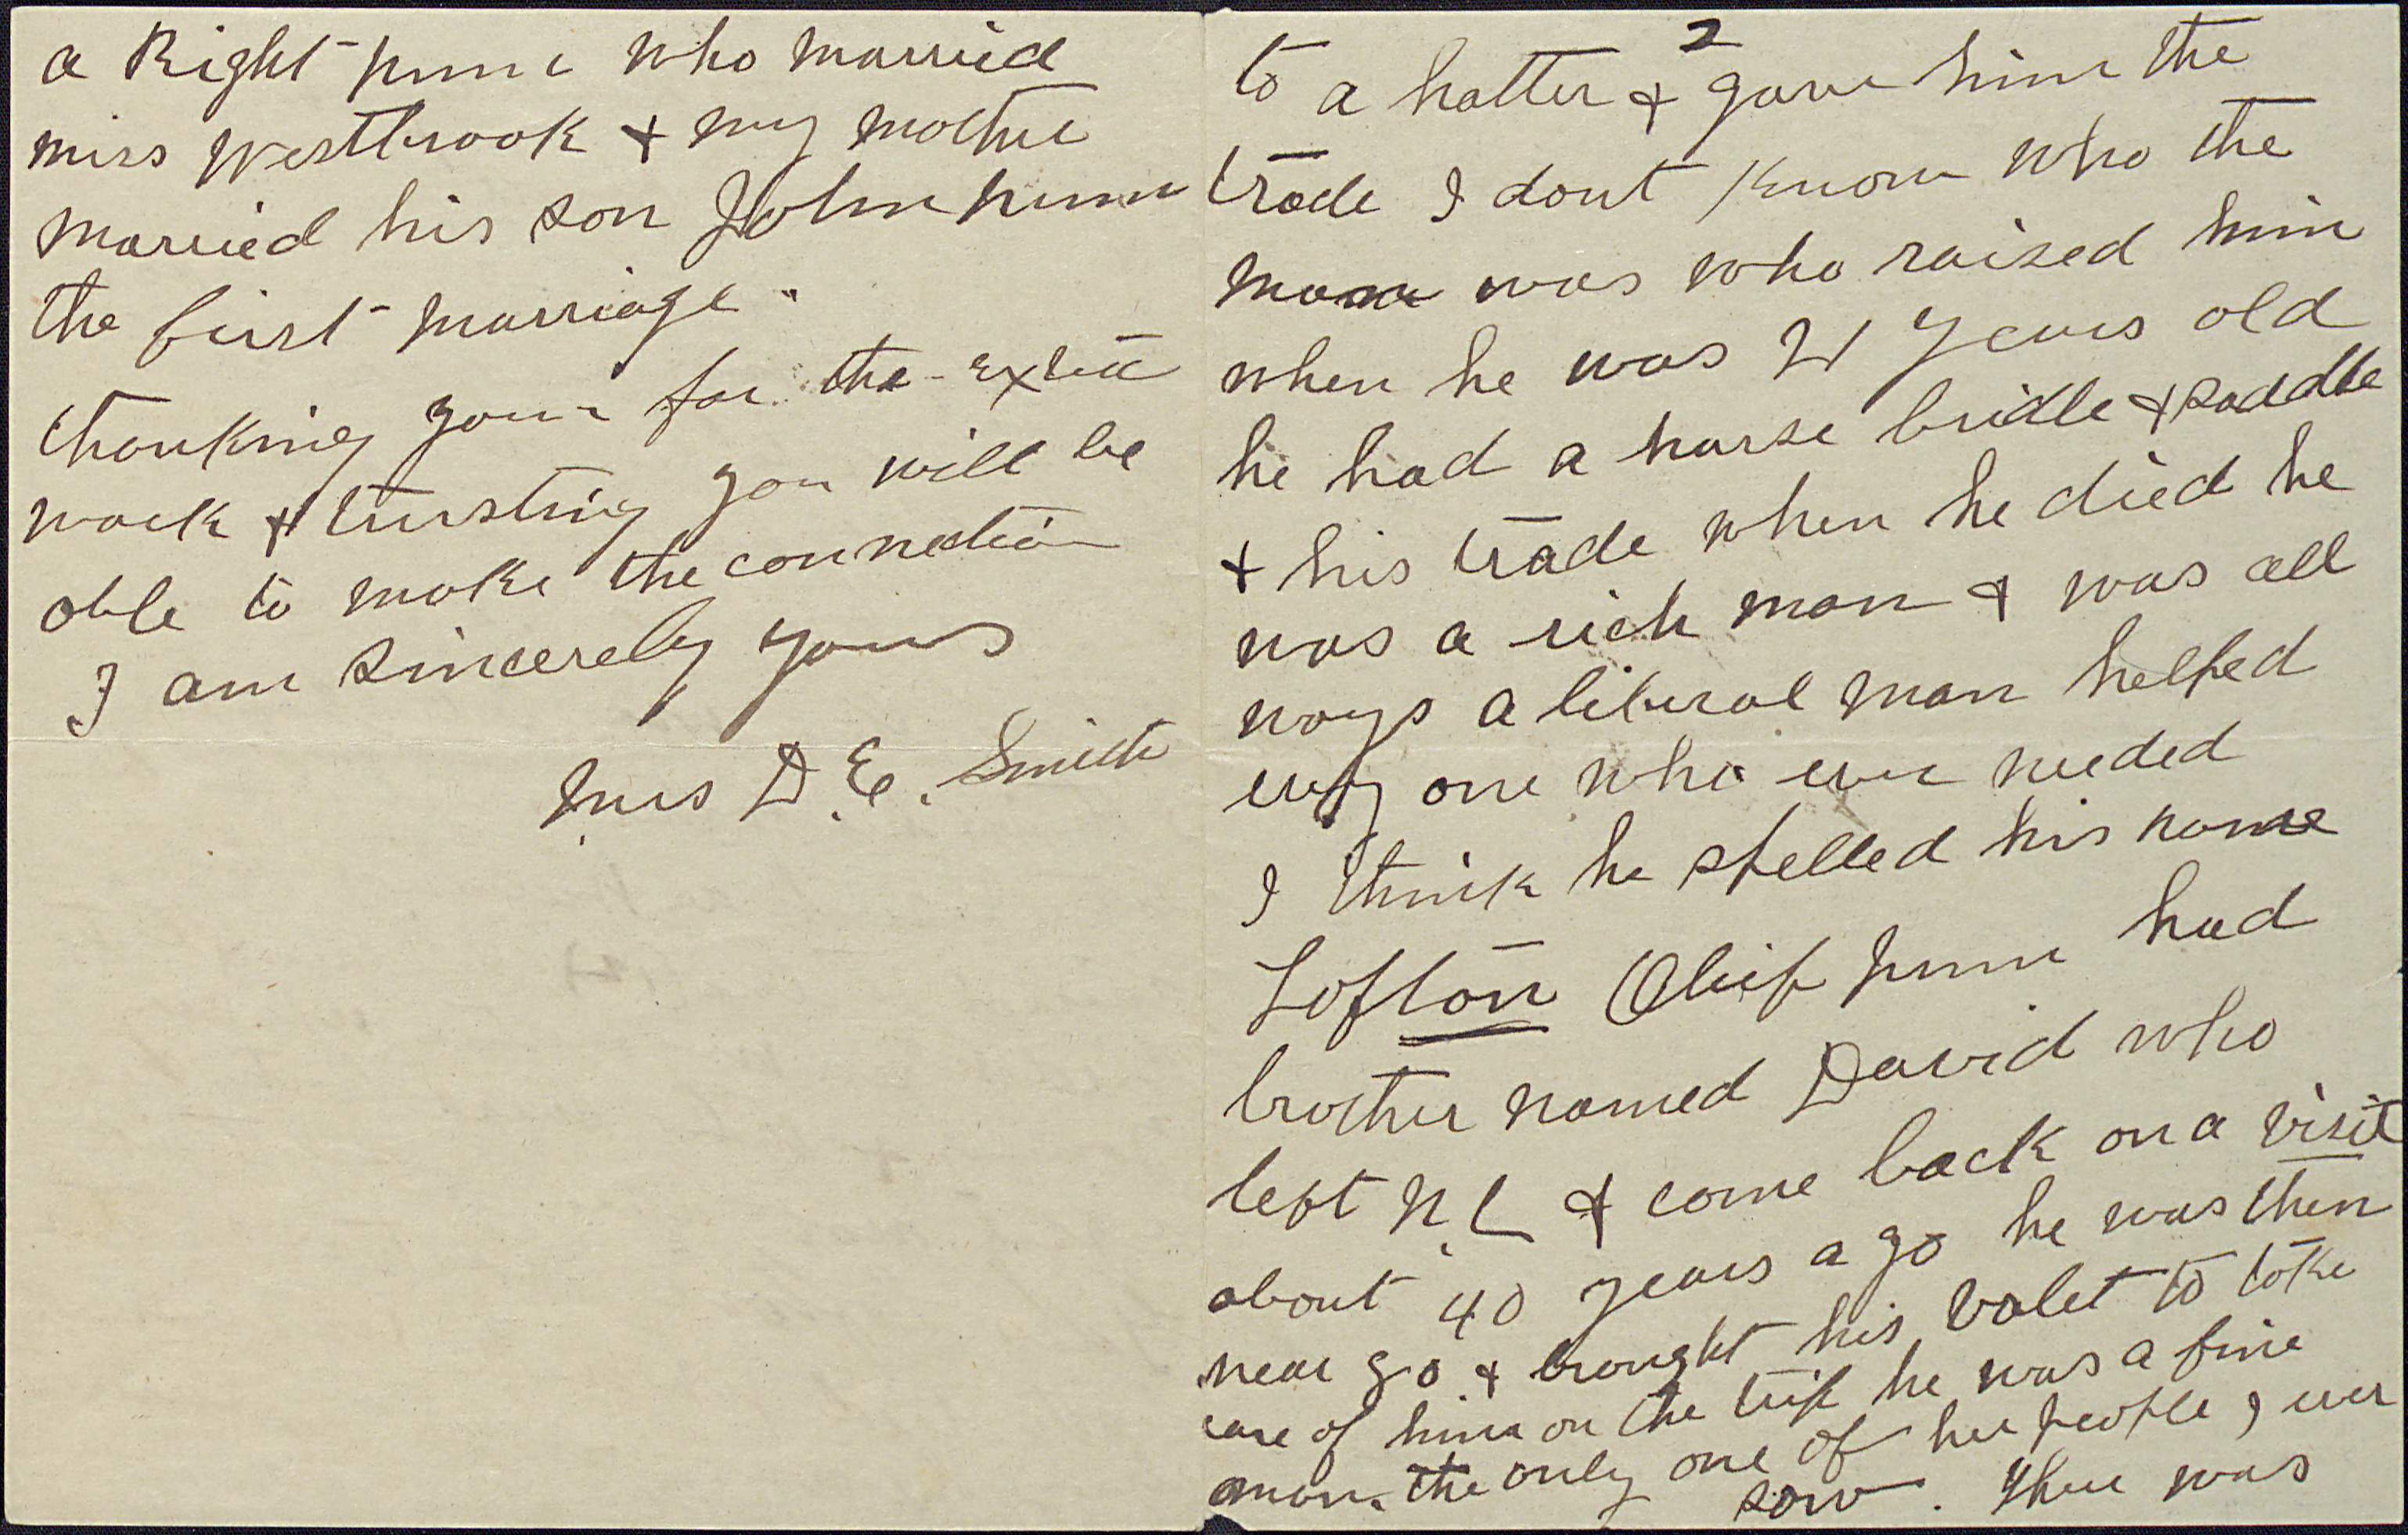 a Right Nunn who married
miss Westbrook + my mother
married his son John Nunn
the first marriage.
thanking you for the extra
work + trusting you will be
able to make the connection
I am sincerely yours
Mrs D.E. Smith
2
to a hatter + gave him the
trade I dont know who the
man was who raised him
when he was 21 years old
he had a horse bridle + saddle
+ his trade when he died he
was a rich man + was all
ways a liberal man helped
every one who ever needed
I think he spelled his name
Lofton Olif Nunn had
brother named David who
left N.C + come back on a visit
about 40 years ago he was then
near 90 + brought his valet to take
care of him on the trip he was a fine
man. the only one of her people I ever
saw. there was